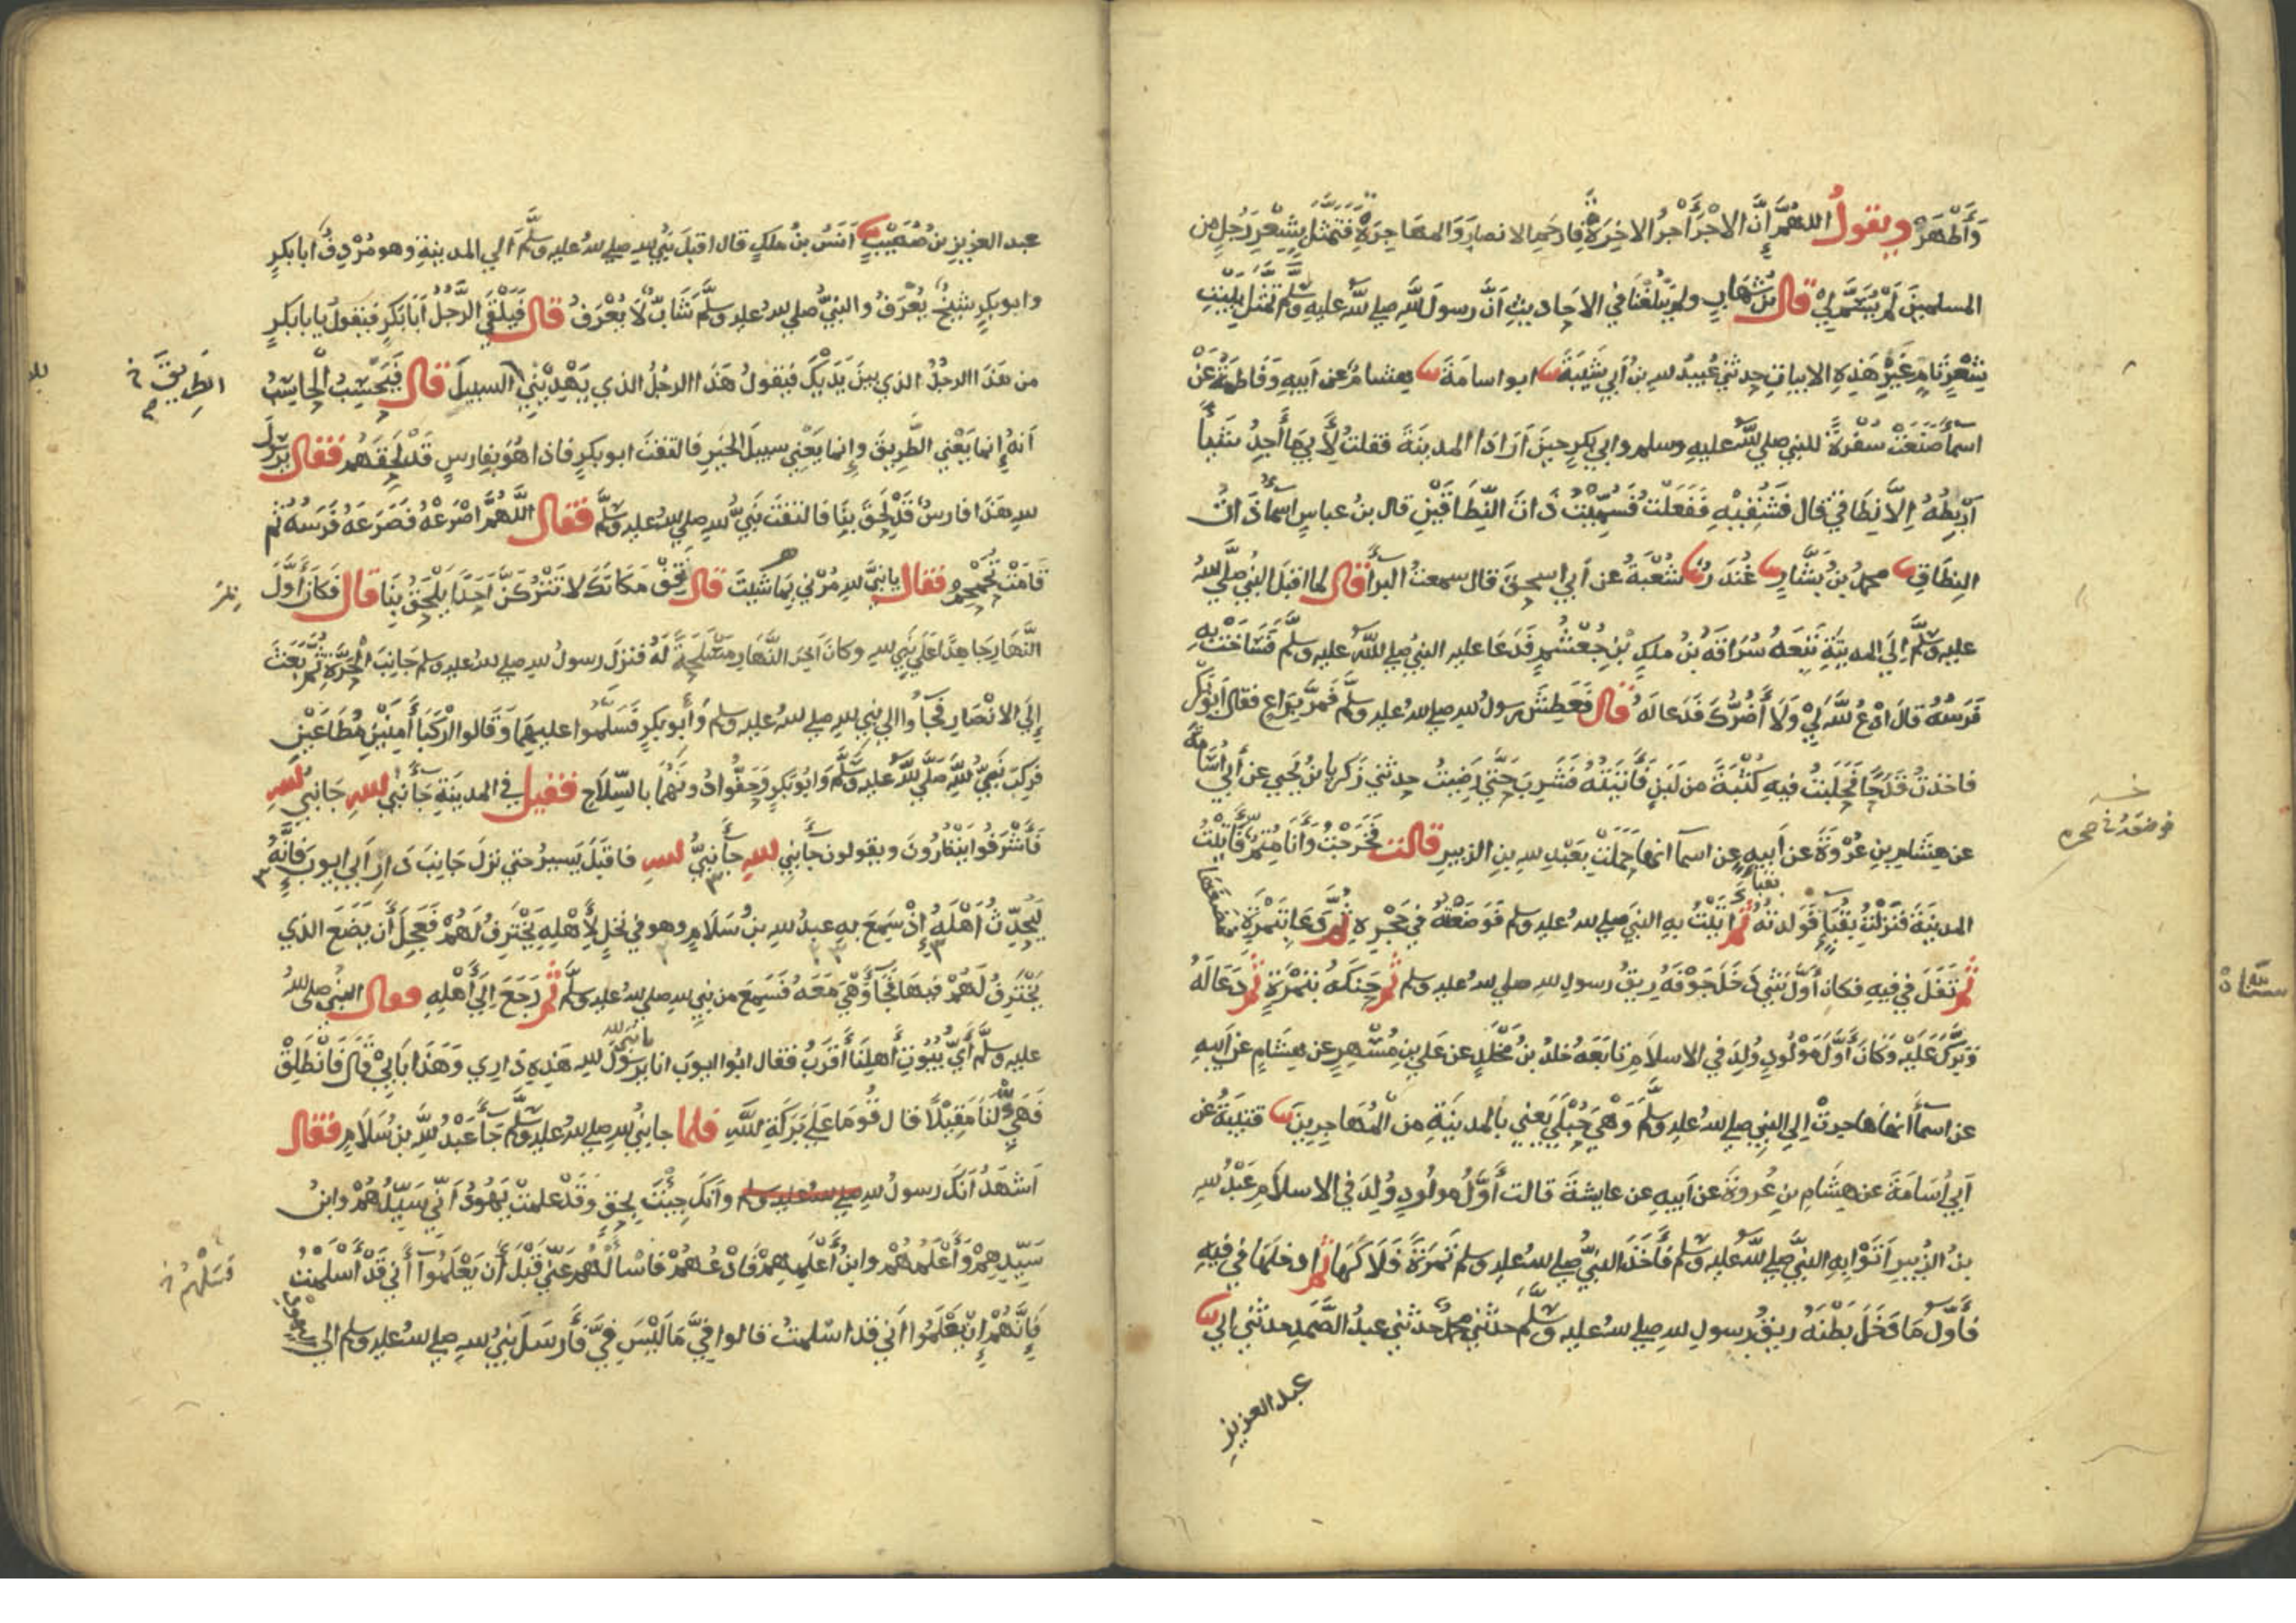 وَأَطْهَرْ ويقولُ اللهُمَّ إِنَّ الاجْرَ أَجْرُ الاخِرَةْ فارحَمِ الانصارَ وَالمهَاجِرَةْ فَتَمَثَّلَ بِشِعْرِ رَجُلٍ مِن
المسلمينَ لَمْ يُسَمَّ لِيْ قال بنُ شِهَابٍ ولم يَبْلُغْنَا فِي الاحاديثِ أَنَّ رسولَ اللهِ صلي الله عليه وسلم تَمَثَّلَ بِبَيْتِ
شِعْرٍ تَامٍّ غَيْرَ هَذِهِ الابياتِ حدثني عُبيدُ الله بنُ أبي شَيْبَةَ ابو اسامَةَ هشامٌ عن ابيهِ وَفَاطِمَةَ عَنْ
اسمآ صَنَعَتْ سُفْرَةً للنبي صلي الله عليه وسلم وابي بكرٍ حينَ اَرَادَا المدينَةَ فقلتُ لأَبِي مَا أَجِدُ شَيْأً
اَرْبِطُهُ إِلَّا نِطَاقِي قال فَشُقِّيْهِ فَفَعَلْتُ فَسُمِّيْتُ ذَاتَ النِّطَاقَيْنِ قال بن عباسٍ اسمآ ذَاتُ
النِطَاقِ محمدُ بنُ بَشَّارٍ غُنْدَرٌ شُعْبَةُ عن أبي اسحقَ قال سمعتُ البرآ قال لما اقبلَ النبيُ صلَّي اللهُ
عليه وسلَّم إِلَى المدينَةِ تَبِعَهُ سُرَاقَةُ بنُ ملكِ بْنِ جُعْشُمٍ فَدَعَا عليه النبيُ صلي الله عليه وسلَّم فَسَاخَتْ بِهِ
فَرَسُهُ قالَ ادْعُ اللهَ لِيْ وَلَا أَضُرُّكَ فَدَعَا لَهُ قال فَعَطِشَ رسولُ الله صلي الله عليه وسلَّم فَمَرَّ بِرَاعٍ فقال ابو بكر
فاخذتُ قَدَحًا فَحَلَبْتُ فيهِ كُثْبَةً من لَبَنٍ فَأَتَيْتُهُ فَشَرِبَ حَتَّي رَضِيْتُ حدثني زكريا بنُ يحيي عن أبي أُسَامَةَ
عن هِشَامِ بنِ عُرْوَةَ عن أَبيهِ عن اسمآ انها حَمَلَتْ بِعَبْدِ الله بنِ الزبيرِ قالت فَخَرَجْتُ وَأَنَا مُتِمٌّ فَأَتَيْتُ
المدينَةَ فَنَزَلْتُ بِقُبَآءٍ فَوَلَدتُهُ بقبآءٍ ثم اتَيْتُ بِهِ النبيَ صلي الله عليه وسلم فَوَضَعْتُهُ فِي حَجْرِهِ ثم دَعَا بِتَمْرَةٍ فمضغها
ثم تَفَلَ في فيهِ فكان أَوَّلَ شَيْءٍ دَخَلَ جَوْفَهُ رِيقُ رسولِ الله صلي الله عليه وسلم ثم حَنَّكَهُ بتَمْرَةٍ ثم دَعَا لَهُ
وَبَرَّكَ عَلَيْهِ وَكَانَ أَوَّلَ مَوْلُودٍ وُلِدَ فِي الاسلامِ تَابَعَهُ خلدُ بنُ مَخْلَدٍ عن عَلي بنِ مُسْهِرٍ عن هِشَامٍ عن اَبيهِ
عن اسمآ أنها هَاجرتْ إلي النبي صلي الله عليه وسلَّم وَهْيَ حُبْلَي يَعْنِي بالمدينَةِ من المُهَاجِرِينَ قتيبَةُ عن
أبي أُسَامَةَ عن هِشَامِ بنِ عُروةَ عن اَبيهِ عن عايشةَ قالت أَوَّلُ مولُودٍ وُلِدَ في الاسلامِ عَبْدُ الله
بنُ الزُبيرِ أَتَوْا بِهِ النبيَّ صلي الله عليه وسلم فَأَخَذَ النبيُّ صلي الله عليه وسلم تَمْرَةً فَلَاكَهَا ثم ادخلَهَا في فيهِ
فأوَّلُ مَا دَخَلَ بَطْنَهُ رِيقُ رسولِ الله صلي الله عليه وسلَّم حدثني محمدٌ حدثني عبدُ الصَّمَدِ حدثني ابي
عبد العزيز
فوضعته في حجره
عبد العزيزِ بنُ صُهَيْبٍ أَنَسُ بنُ ملكٍ قال اقبَلَ نَبِيُ اللهِ صلي الله عليه وسلَّم الي المدينَةِ وهو مُرْدِفٌ أبا بكرٍ
وابو بكرٍ شيخٌ يُعْرَفُ والنبيُّ صلي الله عليه وسلَّم شَابٌّ لَا يُعْرَفُ قال فَيَلْقَي الرَّجُلُ أَبَا بَكْرٍ فيقولُ يابا بكرٍ
من هَذَا الرجُلُ الذي بينَ يَدَيْكَ فيقولُ هَذَا الرجُلُ الذي يَهْدِيْنِي السبيلَ قال فَيَحْسِبُ الْحَاسِبُ
الطريق خ
أَنهُ إِنما يَعْنِي الطَّرِيقَ وإنما يَعْنِي سبيلَ الخيرِ فالتفتَ ابو بكرٍ فاذا هُوَ بِفَارِسٍ قَدْ لَحِقَهُمْ فقال يَرسول
الله هَذَا فارسٌ قَدْ لَحِقَ بِنَا فالتفتَ نَبِيُّ الله صلي الله عليه وسلَّم فقال اللَّهُمَّ اصْرَعْهُ فَصَرَعَهُ فَرَسُهُ ثم
قَامَتْ تُحَمْحِمُ فقال يانبيَّ الله مُرْنِي بِمَا شيتَ قال فَقِفْ مَكَانَكَ لا تَتْرُكَنَّ أَحَدًا يَلْحَقُ بِنَا قال فَكَانَ أَوَّلَ
النَّهَارِ جَاهِدًا عَلَي نَبِي الله وكانَ آخِرَ النَّهَارِ مَسْلَحَةً لَهُ فنزلَ رسولُ الله صلي الله عليه وسلم جَانِبَ الْحَرَّةِ ثُمَّ بَعَثَ
إِلَي الانْصَارِ فَجَآءُوا الي نبي الله صلي الله عليه وسلم وأبو بكرٍ فَسَلَّموا عليهِمَا وَقَالُوا ارْكَبَا آمِنَيْنِ مُطَاعَيْنِ
فَرَكِبَ نَبِيُّ اللهِ صَلَّي الله عليه وسلَّم وَابُو بَكْرٍ وَحَفُّوا دُونَهُمَا بالسِّلَاحِ فقيل في المدينَةِ جَآ نَبِيُّ اللهِ جَا نبيُ اللهِ
فَأَشْرَفُوا يَنْظُرُونَ ويقولون جَآ نَبِيُ اللهِ جآ نبيُّ اللهِ فاقبَلَ يَسِيرُ حتي نزلَ جَانِبَ دَارِ أَبِي ايوبَ فَإِنَّهُ
لَيُحَدِّثُ أَهْلَهُ إِذْ سَمِعَ بِهِ عبدُ الله بنُ سَلَامٍ وهو في نَخلٍ لِأَهْلِهِ يَخْتَرِفُ لَهُمْ فَعَجِلَ أَن يَضَعَ الذي
يَخْتَرِفُ لَهُمْ فيهَا فَجَآ وَهْيَ مَعَهُ فَسَمِعَ من نبي الله صلي الله عليه وسلَّم ثم رَجَعَ إِلَي أَهْلِهِ فقال النبيُ صلي الله
عليه وسلَّم أَيُّ بُيُوتِ أَهلِنَا أَقرَبُ فقال ابُو ايوبَ انا يرسول الله يانبي الله هَذِهِ دَارِي وَهَذَا بَابِيْ قَالَ فَانْطَلِقْ
فَهَيِّ لَنَا مَقِيْلًا قال قُومَا عَلَي بَرَكَةِ اللَّهِ فلما جا نبيُ الله صلي الله عليه وسلَّم جَآ عَبْدُ اللَّهِ بن سَلَامٍ فقال
اَشهَدُ أَنكَ رسولُ الله صلي الله عليه وسلم وأنكَ جِيْتَ بِحَقٍّ وَقَدْ علمتْ يَهُودُ أَنِّي سَيِّدُهُمْ وابنُ
سَيِّدِهِمْ وَأَعْلَمُهُمْ وابنُ أَعْلَمِهِمْ فَادْعُهُمْ فَاسْأَلْهُمْ عَنِّي قَبْلَ أَن يَعْلَمُوا أَنِّي قَدْ أَسْلَمْتُ
فسلهم خ
فَإِنَّهُمْ إِن يَعْلَمُوا أَنِي قد اسْلمتُ قالوا فيَّ مَا لَيْسَ فِيَّ فَأَرسَلَ نبيُ الله صلي الله عليه وسلم الي